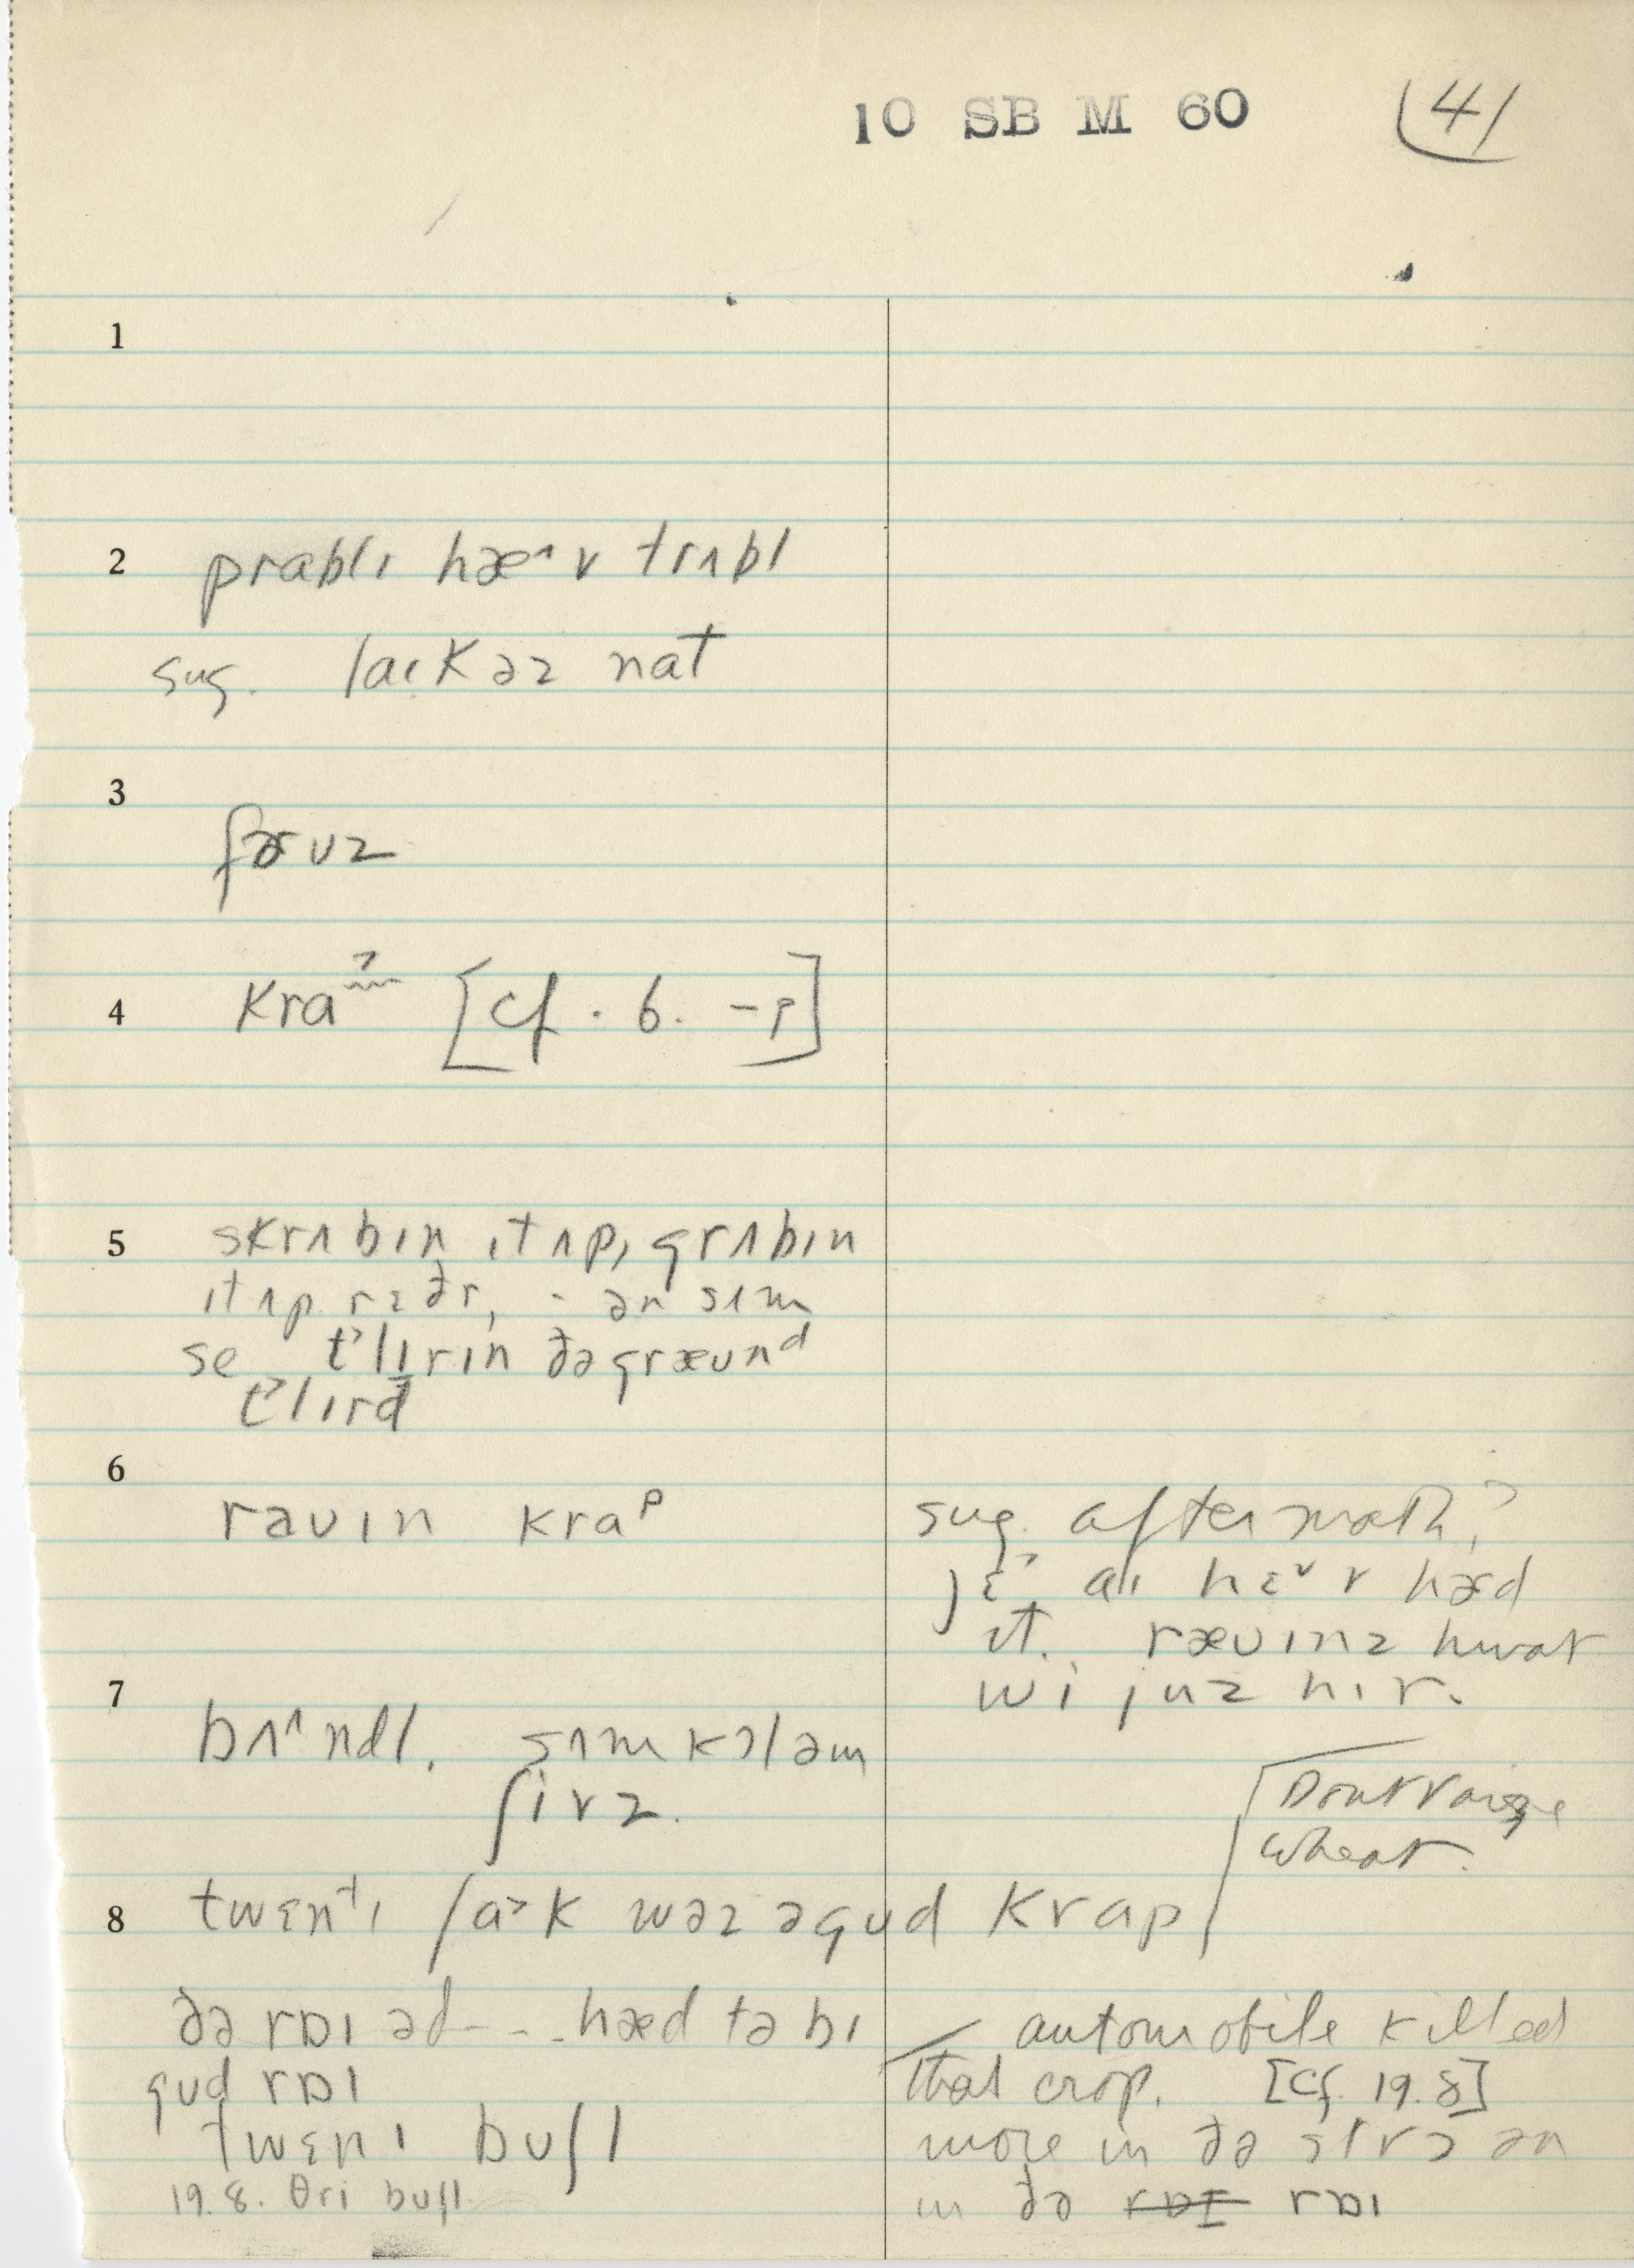 10 SB M 60 41
1
2 prablɪ hæ^v trʌbl
sug. laɪk əz nat
3
færʊz
4 kra ʔ [cf. 6. -p]
5 skrʌbɪn ɪt ʌp, grʌbɪn
ɪt ʌp rɛðr, - ən sʌm
se t'lɪrɪn ðə græʊnd
t'lɪrd
6
raʊɪn krap
sug. aftermath?
jɛ aɪ hɛv hæd
ɪt. ræʊɪnz hwat
wi juz hɪr.
7
bʌ^ndl, sʌm kɔləm
ʃivz.
Dont raise
wheat.
8 twɛntɪ laɪk wəz ə gud krap
ðə rɒɪ əd - - - hæd tə bɪ
gud rɒɪ
twɛnɪ buʃl
19.8. θri buʃl
automobile killed
that crop. [cf. 19.8]
more in ðə strɔ ən
in ðə rɒɪ rɒɪ